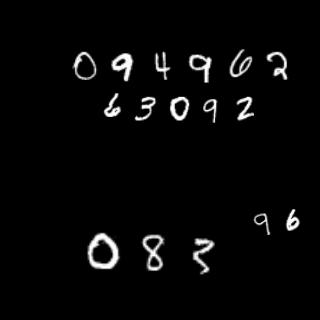 094962
63092
96
083